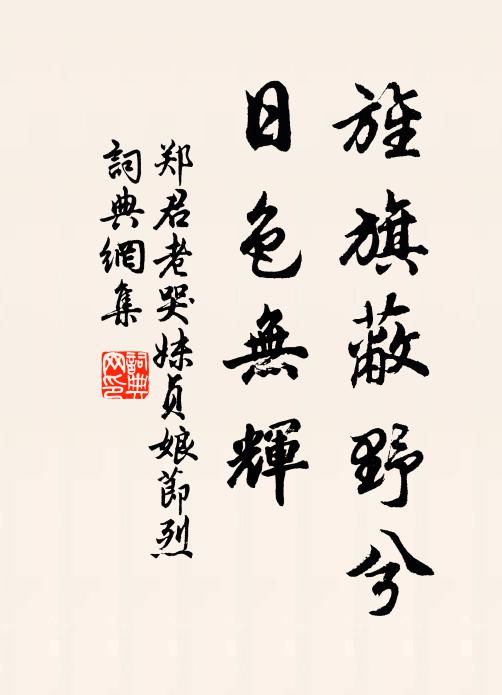 旌旗蔽野兮
日色無輝
郑君老哭妹贞娘節烈
詞典網集
詞典網印